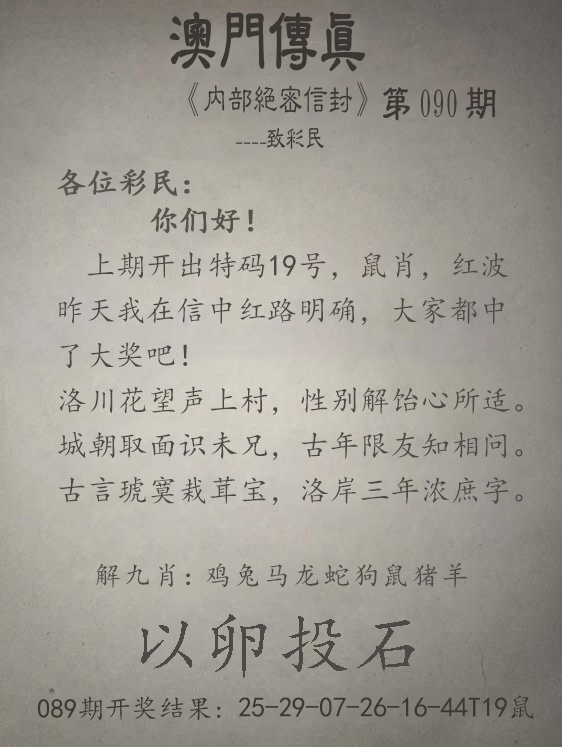 澳門傳真
《内部絕密信封》第090期
----致彩民
各位彩民：
你们好！
上期开出特码19号，鼠肖，红波
昨天我在信中红路明确，大家都中
了大奖吧！
洛川花望声上村，性别解饴心所适。
城朝取面识未兄，古年限友知相问。
古言琥寞栽茸宝，洛岸三年浓庶字。
解九肖：鸡兔马龙蛇狗鼠猪羊
以卵投石
089期开奖结果：25-29-07-26-16-44T19鼠